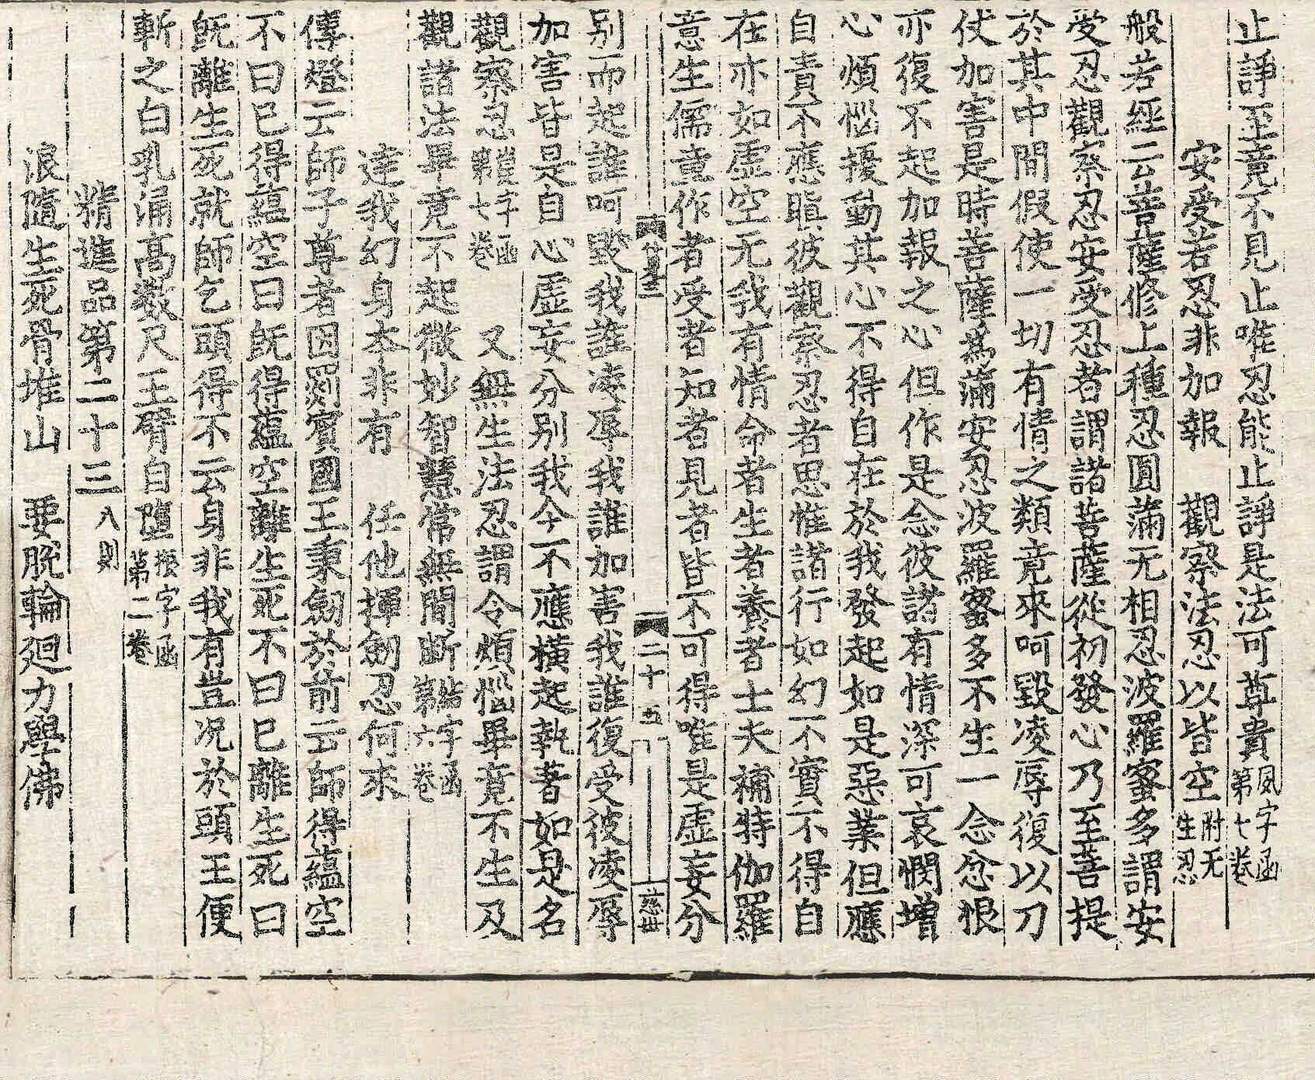 止諍至竟不見止唯忍能止諍是法可尊貴
第七卷
安受若忍非加報　觀察法忍以皆空附无生忍
般若經云菩薩修上種忍圓滿无相忍波羅蜜多謂安
受忍觀察忍安受忍者謂諸菩薩從初發心乃至菩提
於其中間假使一切有情之類竟來呵毀凌辱復以刀
仗加害是時菩薩爲滿安忍波羅蜜多不生一念忿恨
亦復不起加報之心但作是念彼諸有情深可哀愍增
心煩惱擾動其心不得自在於我發起如是惡業但應
自責不應瞋彼觀察忍者思惟諸行如幻不實不得自
在亦如虛空无我有情命者生者養者士夫補特伽羅
意生儒童作者受者知者見者皆不可得唯是虛妄分
二十五
別而起誰呵毀我誰凌辱我誰加害我誰復受彼凌辱
加害皆是自心虛妄分別我今不應橫起執著如是名
觀察忍第七卷　又無生法忍謂令煩惱畢竟不生及
觀諸法畢竟不起微妙智慧常無間斷第六卷
達我幻身本非有　任他揮劒忍何求
傳燈云師子尊者因罽賓國王秉劒於前云師得蘊空
不曰已得蘊空曰旣得蘊空離生死不曰已離生死曰
旣離生死就師乞頭得不云身非我有豈况於頭王便
斬之白乳涌高數尺王臂自墮第二卷
精進品第二十三八則
浪隨生死骨堆山　要脫輪廻力學佛